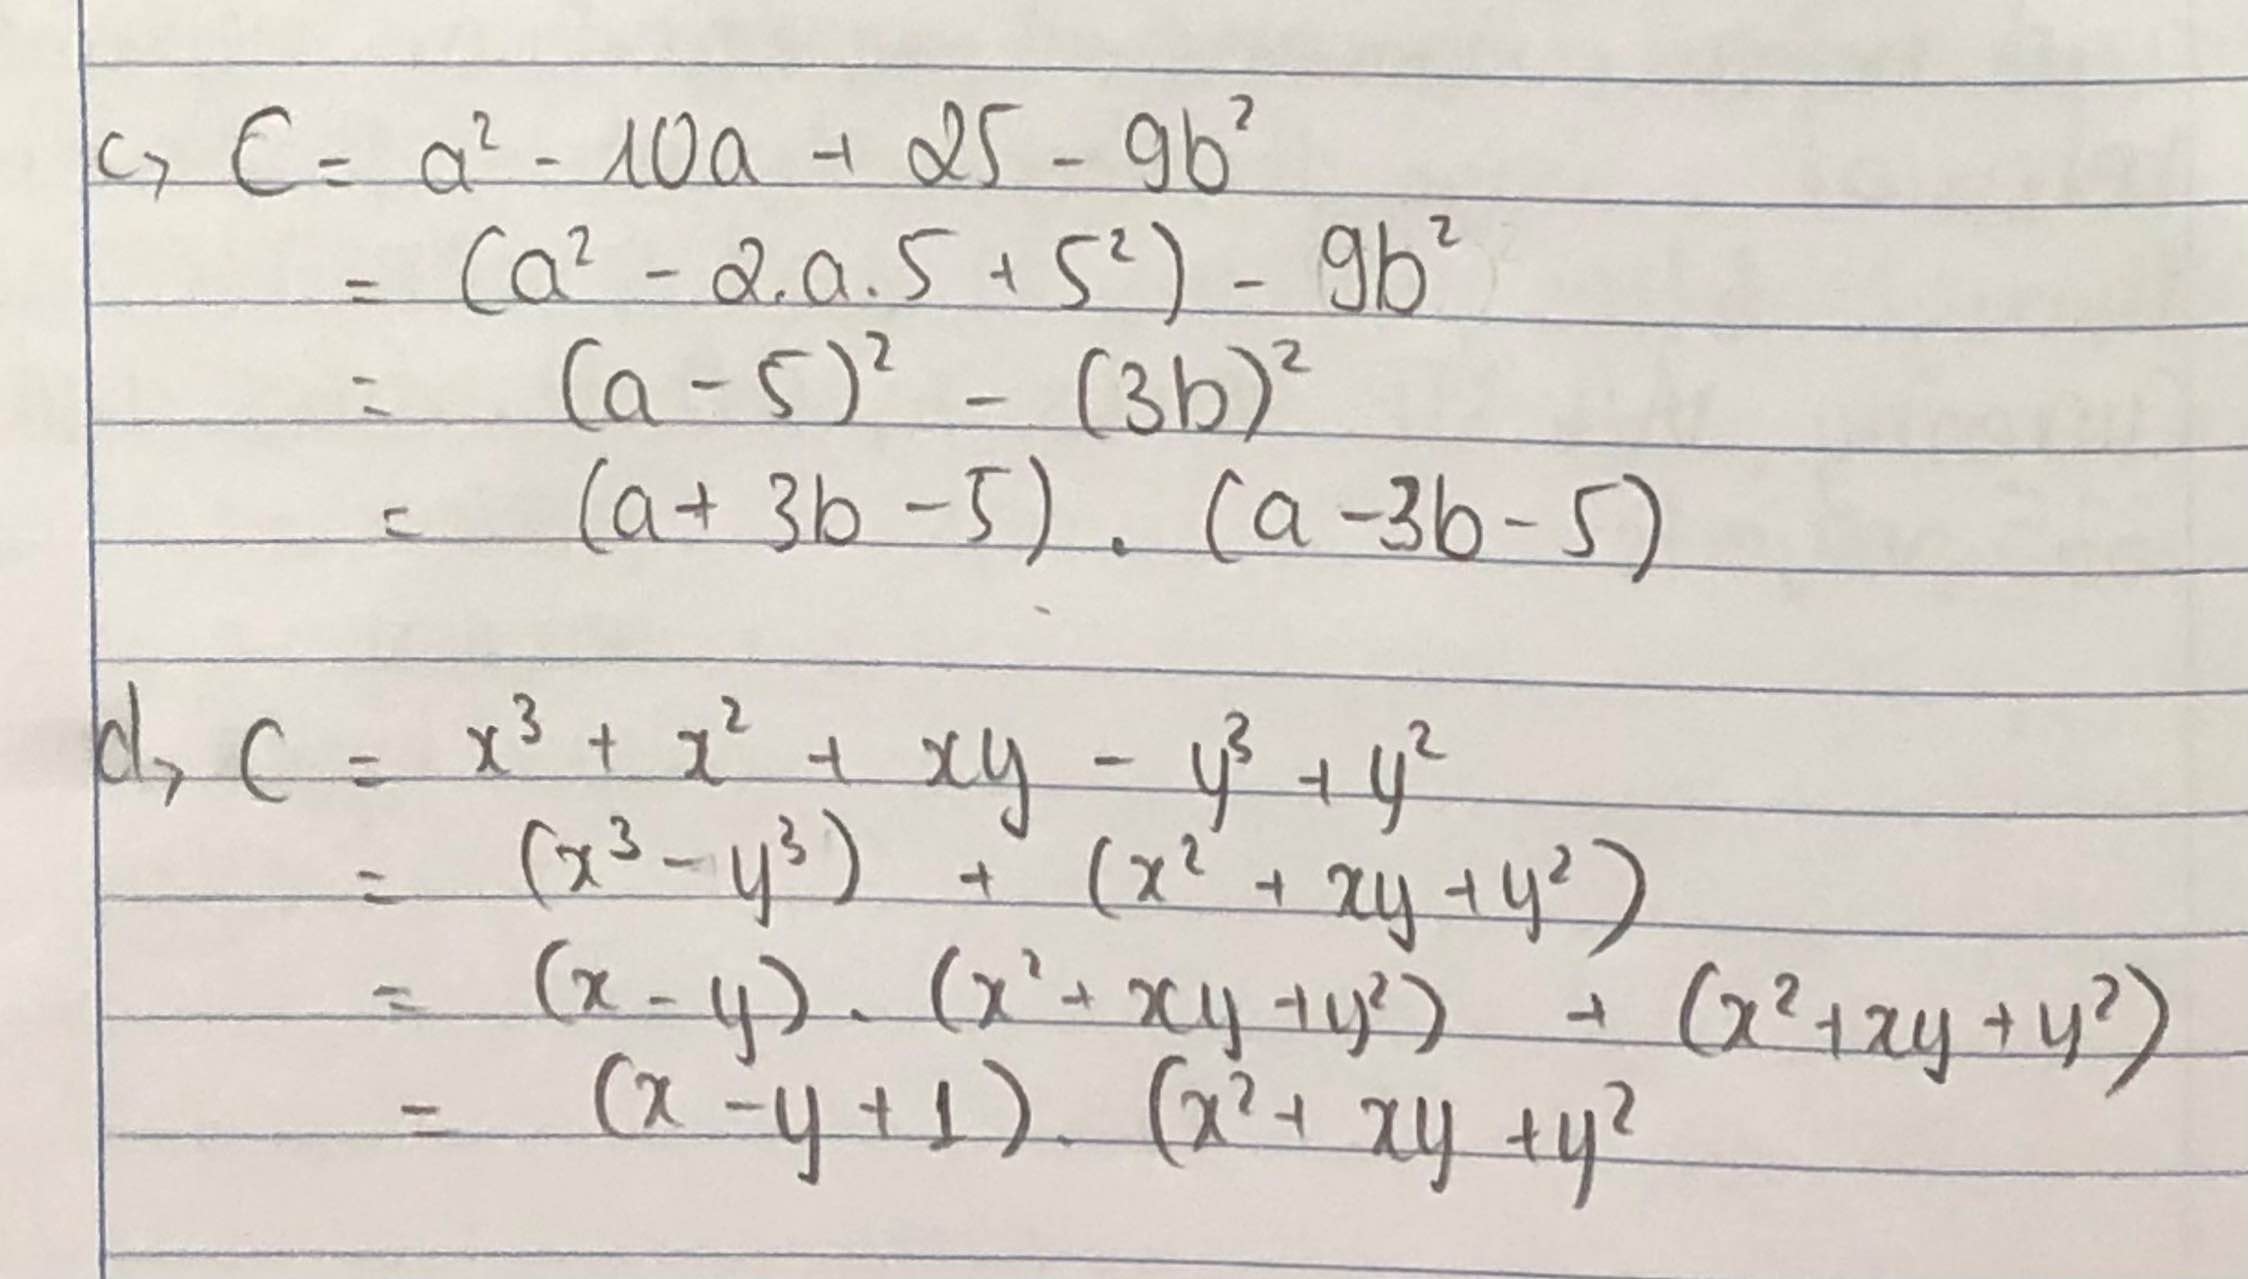 c, C = a² - 10a + 25 - 9b²
= (a² - 2.a.5 + 5²) - 9b²
= (a - 5)² - (3b)²
= (a + 3b - 5) . (a - 3b - 5)
d, C = x³ + x² + xy - y³ + y²
= (x³ - y³) + (x² + xy + y²)
= (x - y) . (x² + xy + y²) + (x² + xy + y²)
= (x - y + 1) . (x² + xy + y²